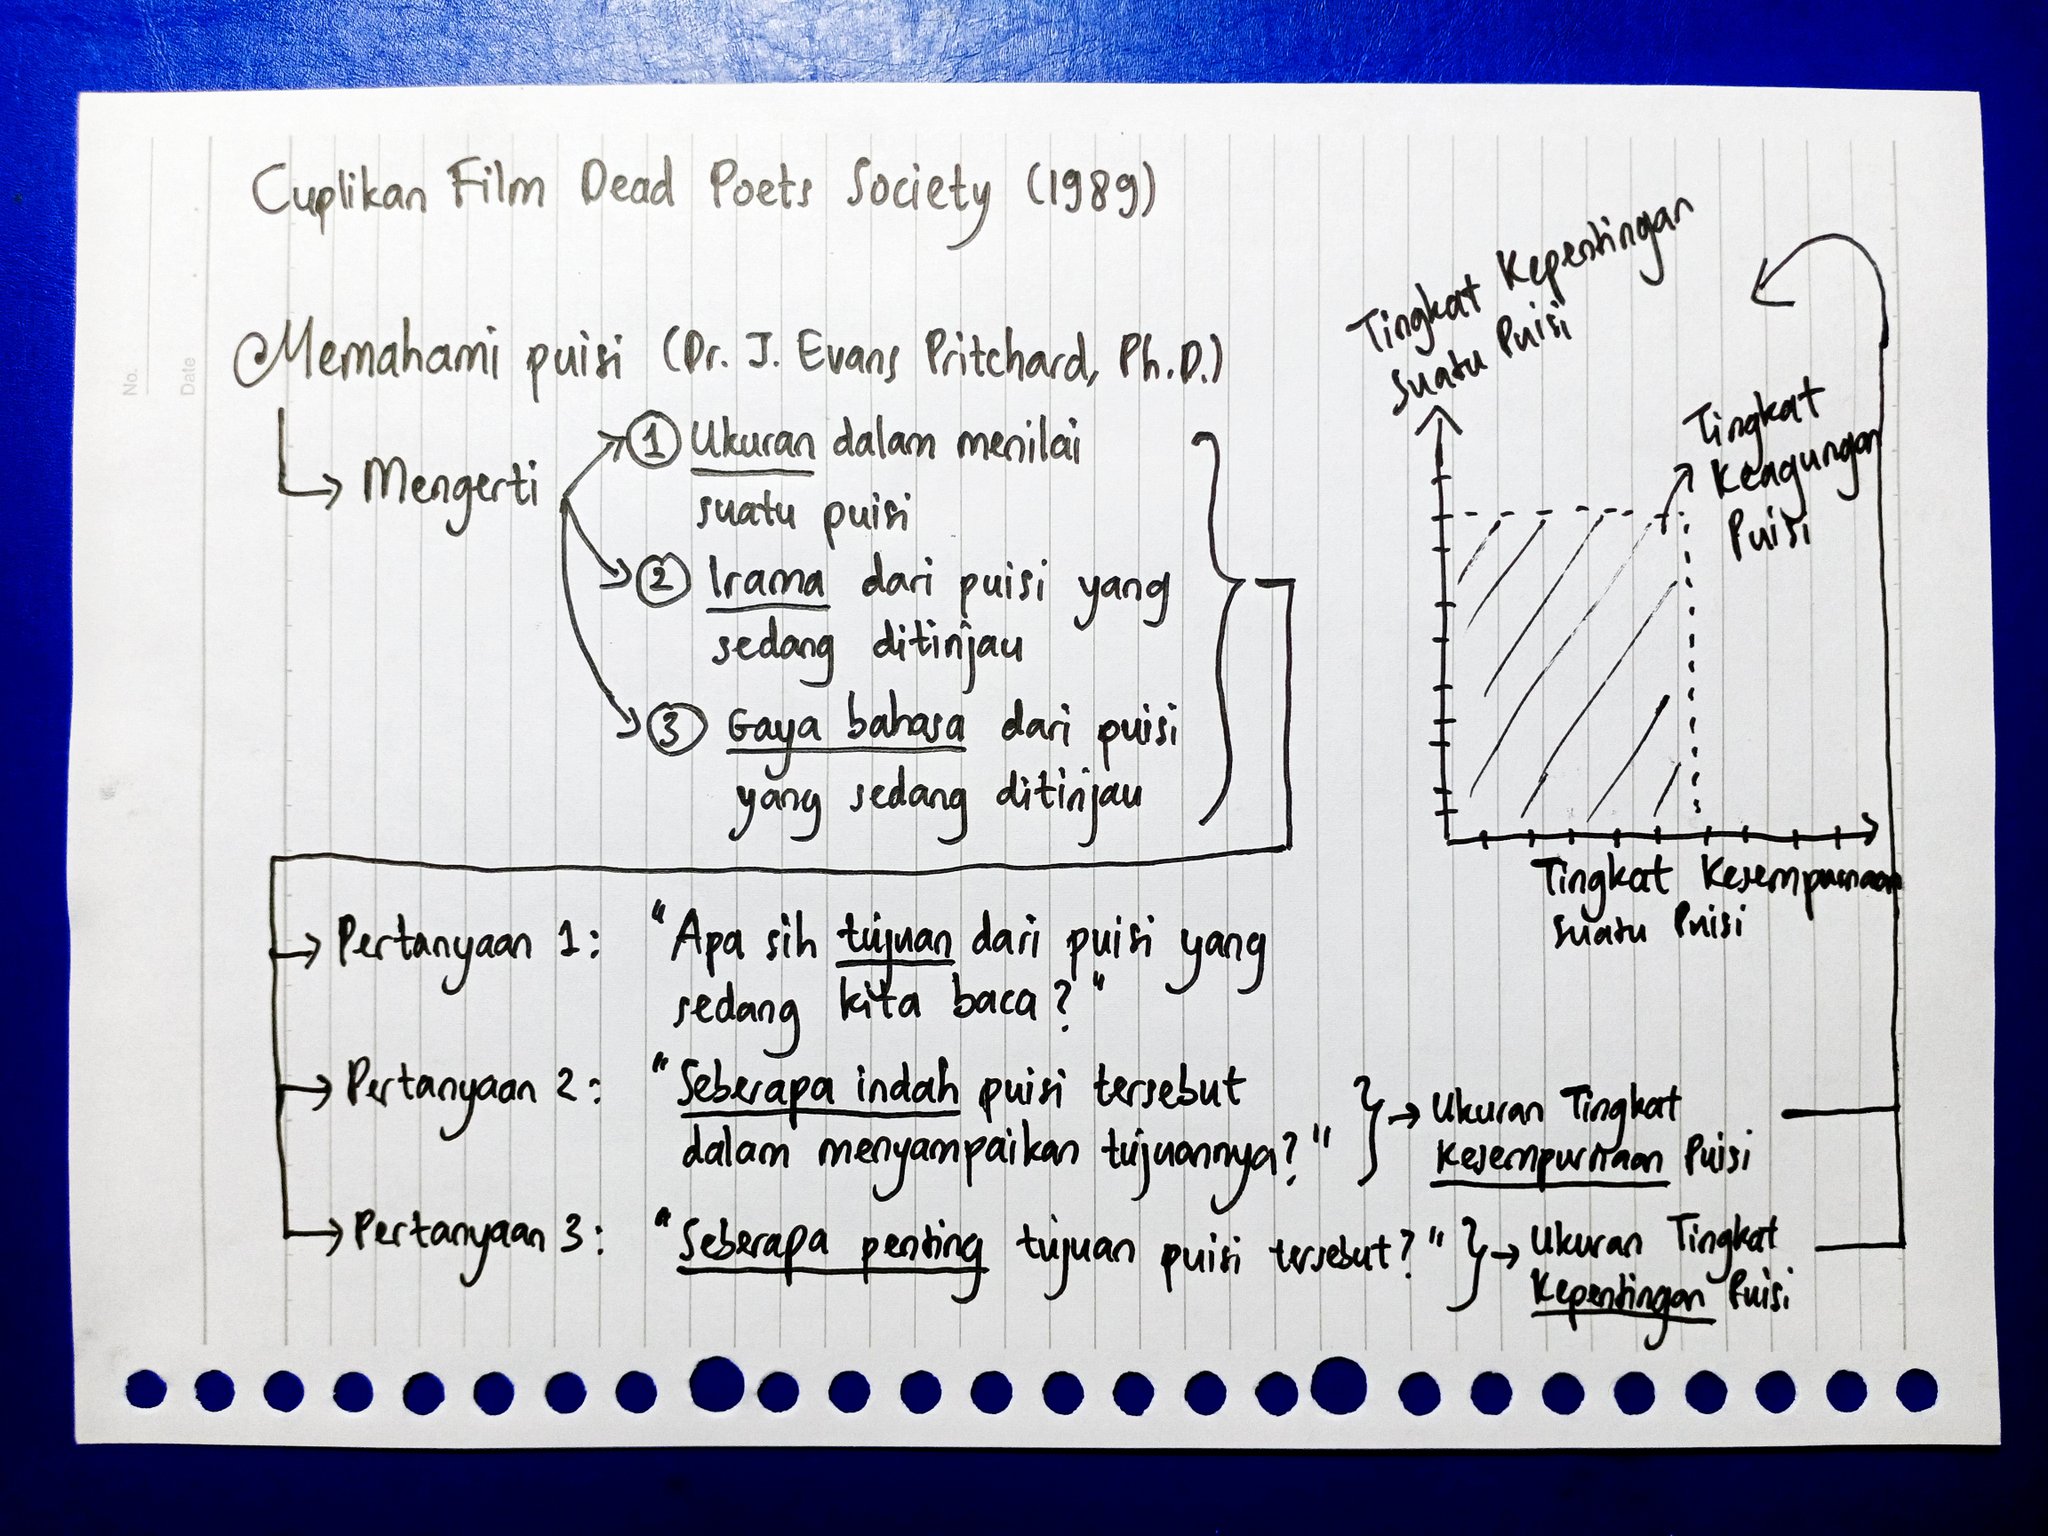 Cuplikan Film Dead Poets Society (1989)
No.
Date
Memahami puisi (Dr. J. Evans Pritchard, Ph.D.)
Mengerti
1 Ukuran dalam menilai
suatu puisi
2 Irama dari puisi yang
sedang ditinjau
3 Gaya bahasa dari puisi
yang sedang ditinjau
Tingkat Kepentingan
Suatu Puisi
Tingkat
Keagungan
Puisi
Tingkat Kesempurnaan
Suatu Puisi
Pertanyaan 1: "Apa sih tujuan dari puisi yang
sedang kita baca?"
Pertanyaan 2: "Seberapa indah puisi tersebut
dalam menyampaikan tujuannya?"
Ukuran Tingkat
Kesempurnaan Puisi
Pertanyaan 3: "Seberapa penting tujuan puisi tersebut?"
Ukuran Tingkat
Kepentingan Puisi